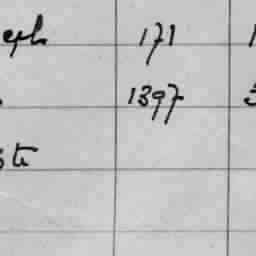 eph 171 1
1397 3
ste